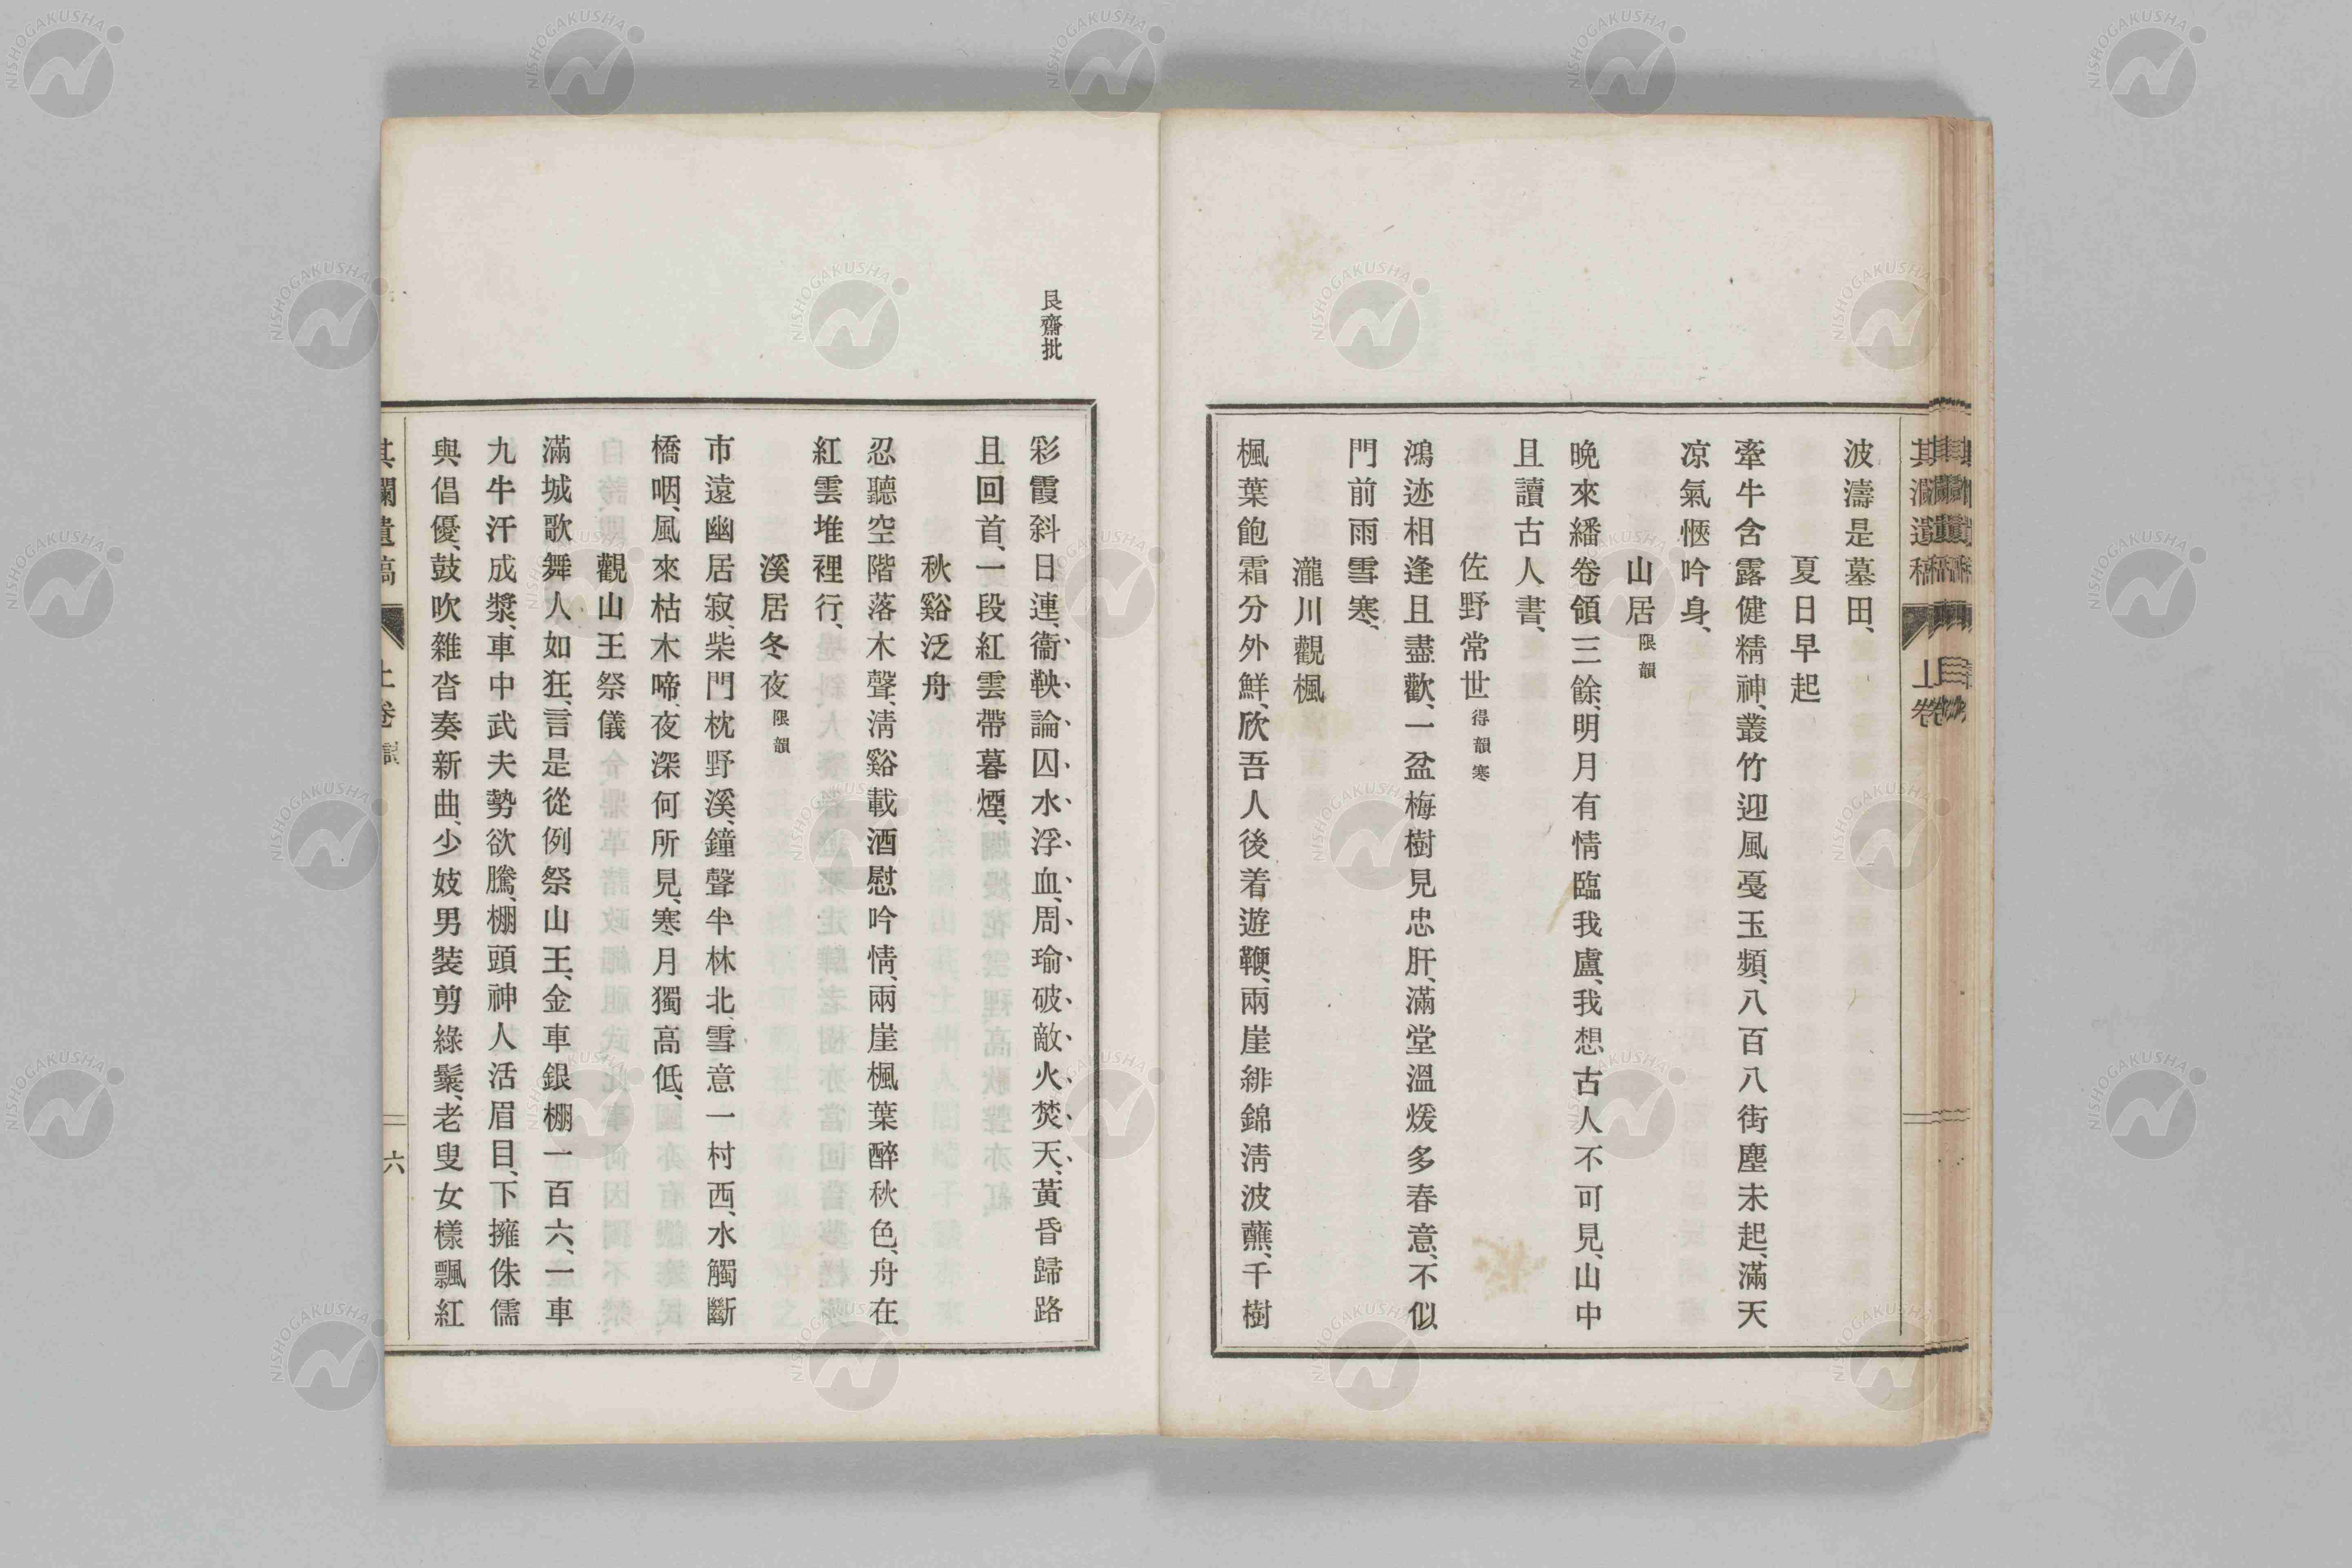 波濤是墓田、
夏日早起
牽牛含露健精神、叢竹迎風戞玉頻、八百八街塵未起、滿天
凉氣愜吟身、
山居 限韻
晩來繙卷領三餘、明月有情臨我廬、我想古人不可見、山中
且讀古人書、
佐野常世 得韻寒
鴻迹相逢且盡歡、一盆梅樹見忠肝、滿堂溫煖多春意、不似
門前雨雪寒、
瀧川觀楓
楓葉飽霜分外鮮、欣吾人後着遊鞭、兩崖緋錦淸波蘸、千樹
艮齋批
彩霞斜日連、衞鞅論囚水浮血、周瑜破敵火焚天、黃昏歸路
且回首、一段紅雲帶暮煙、
秋谿泛舟
忍聽空階落木聲、淸谿載酒慰吟情、兩崖楓葉醉秋色、舟在
紅雲堆裡行、
溪居冬夜 限韻
市遠幽居寂、柴門枕野溪、鐘聲半林北、雪意一村西、水觸斷
橋咽、風來枯木啼、夜深何所見、寒月獨高低、
觀山王祭儀
滿城歌舞人如狂、言是從例祭山王、金車銀棚一百六、一車
九牛汗成漿、車中武夫勢欲騰、棚頭神人活眉目、下擁侏儒
與倡優、鼓吹雜沓奏新曲、少妓男裝剪綠鬟、老叟女樣飄紅
其瀾遺稿 上卷 六
NISHOGAKUSHA